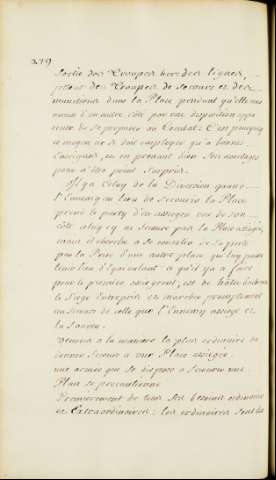 239
Sortie des Troupes hors des lignes,
jettent des Troupes de Secours et des
munitions dans la Place pendant qu'elle
amuse d'un autre côté par une disposition appa
rente de se preparer au Combat: C'est pourquoy
ce moyen ne se doit employer qu'à bonnes
Enseignes, en prenant bien ses avantages
pour n'être point Surpris.
Il y a celuy de la Diversion quand
l'Ennemy au lieu de Secourir la Place
prend le party d'en assieger une de son
côté celuy cy ne Secoure pas la Place assiegée,
mais il cherche à se consoler de sa perte
par la Prise d'une autre place qui luy puisse
tenir lieu d'Equivalent à qu'il y a à faire
pour le premier cas, est de hâter
le Siege Entrepris et marcher promptement
au Secours de celle que l'Ennemy assiege et
la Sauver.
Venons à la maniere la plus ordinaire de
donner Secours à une Place assiegée.
une armée que se dispose à Secourir une
Place se precautionne
Premierement de tous ses besoins ordinaires
et Extraordinaires: les ordinaires sont des